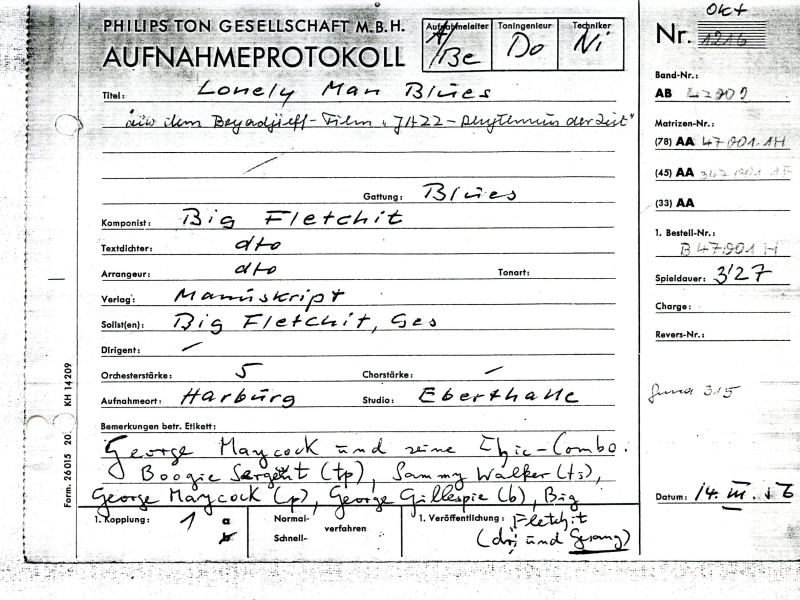 PHILIPS TON GESELLSCHAFT M.B.H.
AUFNAHMEPROTOKOLL
Aufnahmeleiter
/Be
Toningenieur
Do
Techniker
Ni
Okt
Nr. 1216
Titel: Lonely Man Blues
aus dem Film "JAZZ - der Zeit"
Gattung: Blues
Komponist: Big Fletchit
Textdichter: dto
Arrangeur: dto
Tonart:
Verlag: Manuskript
Solist(en): Big Fletchit, Ges
Dirigent: —
Orchesterstärke: 5
Chorstärke: —
Aufnahmeort: Harburg
Studio: Eberthalle
Bemerkungen betr. Etikett:
George Maycock und seine Combo.
Boogie Sergent (tp), Sammy Walker (ts),
George Maycock (p), George Gillespie (b), Big
Fletchit
(dr; und Gesang)
1. Koppiung: 1 a
b
Normal-
Schnell-
verfahren
1. Veröffentlichung:
Band-Nr.:
AB
Matrizen-Nr.:
(78) AA 47001 1H
(45) AA
(33) AA
1. Bestell-Nr.:
B 47001 H
Spieldauer: 3'27
Charge:
Revers-Nr.:
315
Datum: 14. III. 56
Form. 26015 20 KH 14209